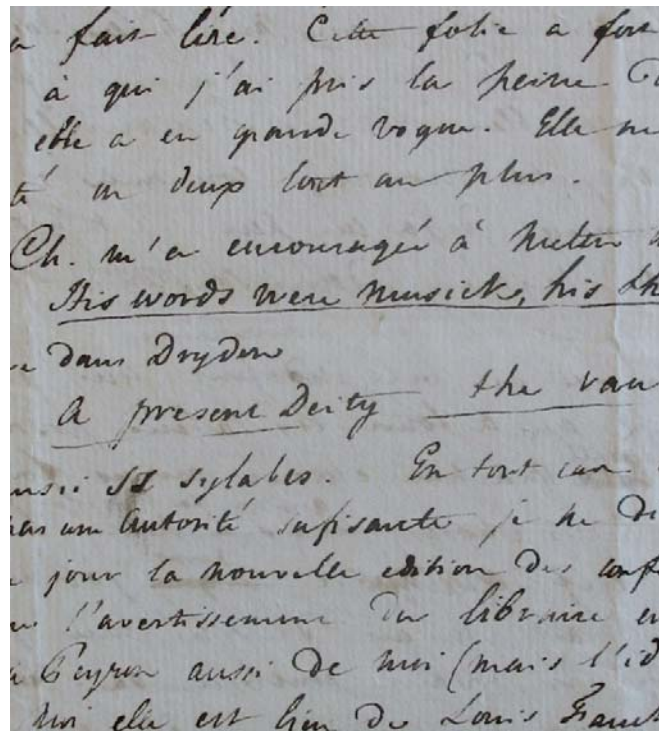 a fait lire. Cette folie a fort
à qui j'ai pris la peine
elle a eu grande vogue. Elle
té un deux tout au plus.
Ch. m'a encouragée à mettre
His words were musick, his th
dans Dryden
A present Deity the vau
ussi sylabes. En tout cas
pas une autorité sufisante je ne
jour la nouvelle edition des conf
l'avertissement du libraire
Peyrou aussi de moi (mais l'id
moi elle est bien de Louis Fauch